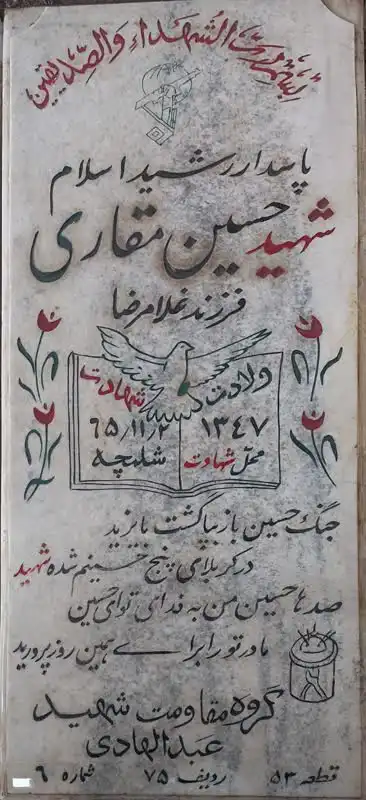 بسم رب الشهداء والصدیقین
پاسدار رشید اسلام
شهید حسین مقاری
فرزند غلامرضا
ولادت
۱۳۴۷
شهادت
۶۵/۱۱/۲
محل شهادت
شلمچه
جنگ حسین باز بپا گشت با یزید
در کربلای پنج حسینم شده شهید
صدها حسین من به فدای تو ای حسین
مادر تو را برای همین روز پرورید
گروه مقاومت شهید
عبدالهادی
قطعه ۵۳ ردیف ۷۵ شماره ۶